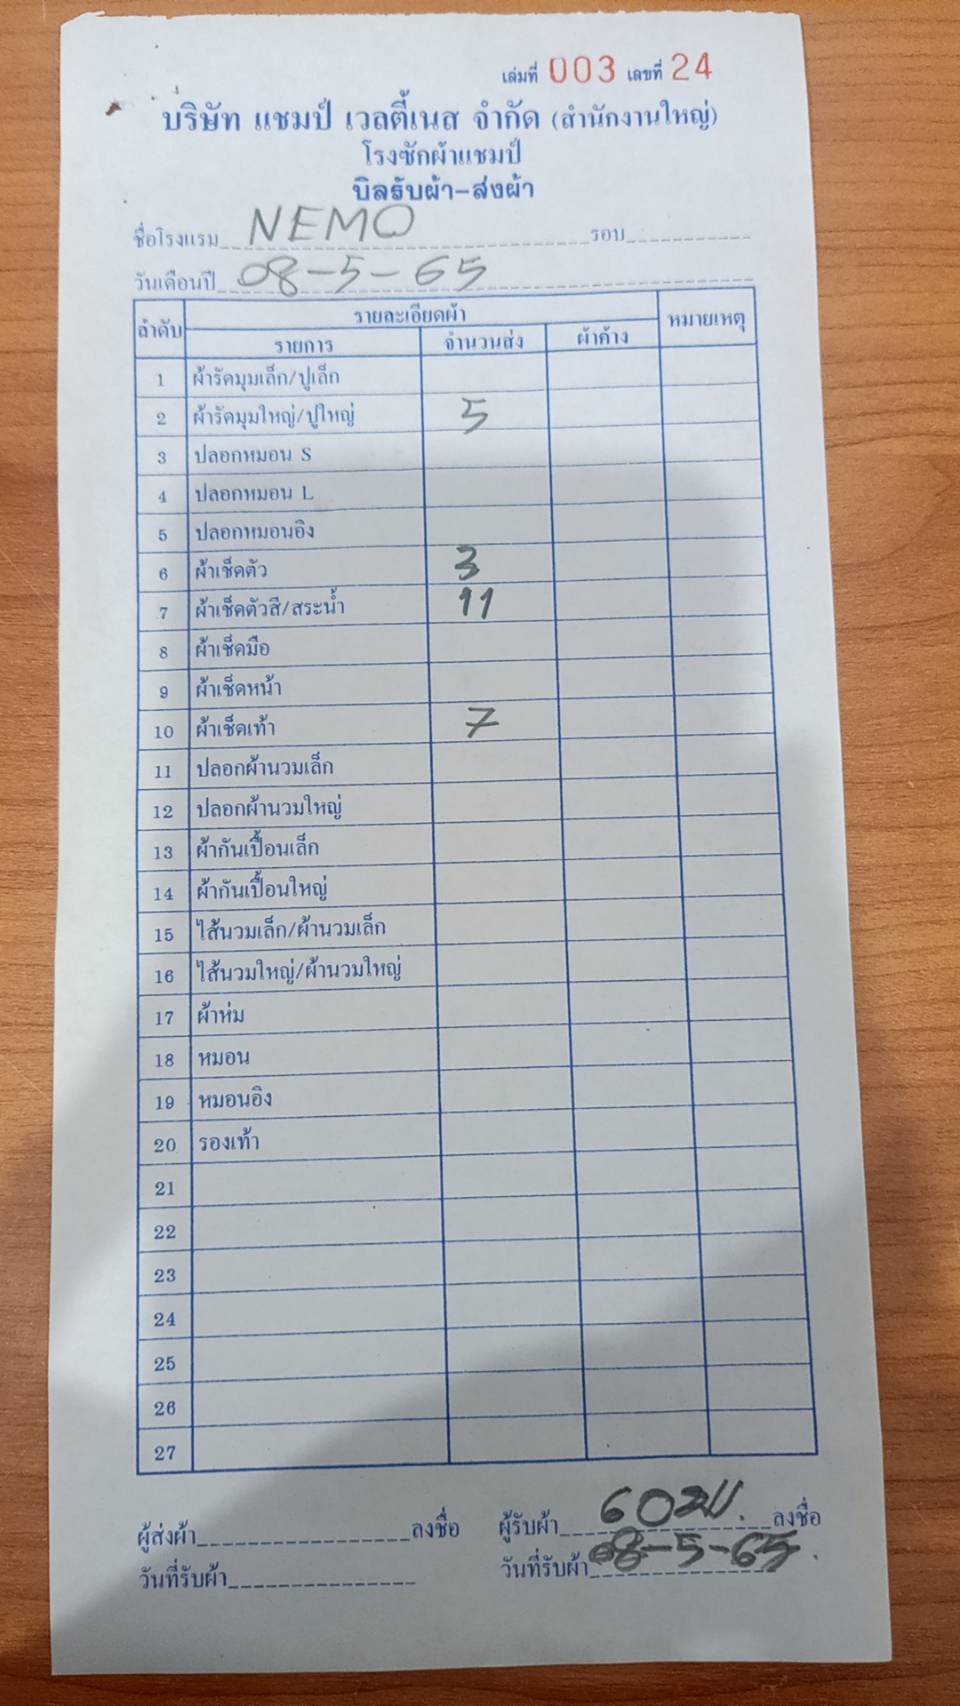 เล่มที่ 003 เลขที่ 24
บริษัท แชมป์ เวลตี้เนส จำกัด (สำนักงานใหญ่)
โรงซักผ้าแชมป์
บิลรับผ้า-ส่งผ้า
ชื่อโรงแรม NEMO รอบ
วันเดือนปี 08-5-65
ลำดับ รายละเอียดผ้า หมายเหตุ
รายการ จำนวนส่ง ผ้าค้าง
1 ผ้ารัดมุมเล็ก/ปูเล็ก
2 ผ้ารัดมุมใหญ่/ปูใหญ่ 5
3 ปลอกหมอน S
4 ปลอกหมอน L
5 ปลอกหมอนอิง
6 ผ้าเช็ดตัว 3
7 ผ้าเช็ดตัวสี/สระน้ำ 11
8 ผ้าเช็ดมือ
9 ผ้าเช็ดหน้า
10 ผ้าเช็ดเท้า 7
11 ปลอกผ้านวมเล็ก
12 ปลอกผ้านวมใหญ่
13 ผ้ากันเปื้อนเล็ก
14 ผ้ากันเปื้อนใหญ่
15 ไส้นวมเล็ก/ผ้านวมเล็ก
16 ไส้นวมใหญ่/ผ้านวมใหญ่
17 ผ้าห่ม
18 หมอน
19 หมอนอิง
20 รองเท้า
21
22
23
24
25
26
27
ผู้ส่งผ้า ลงชื่อ ผู้รับผ้า ลงชื่อ
วันที่รับผ้า วันที่รับผ้า 08-5-65